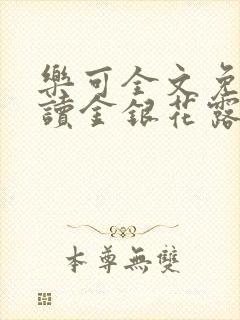 樂可全文免
讀金銀花露
本尊無雙